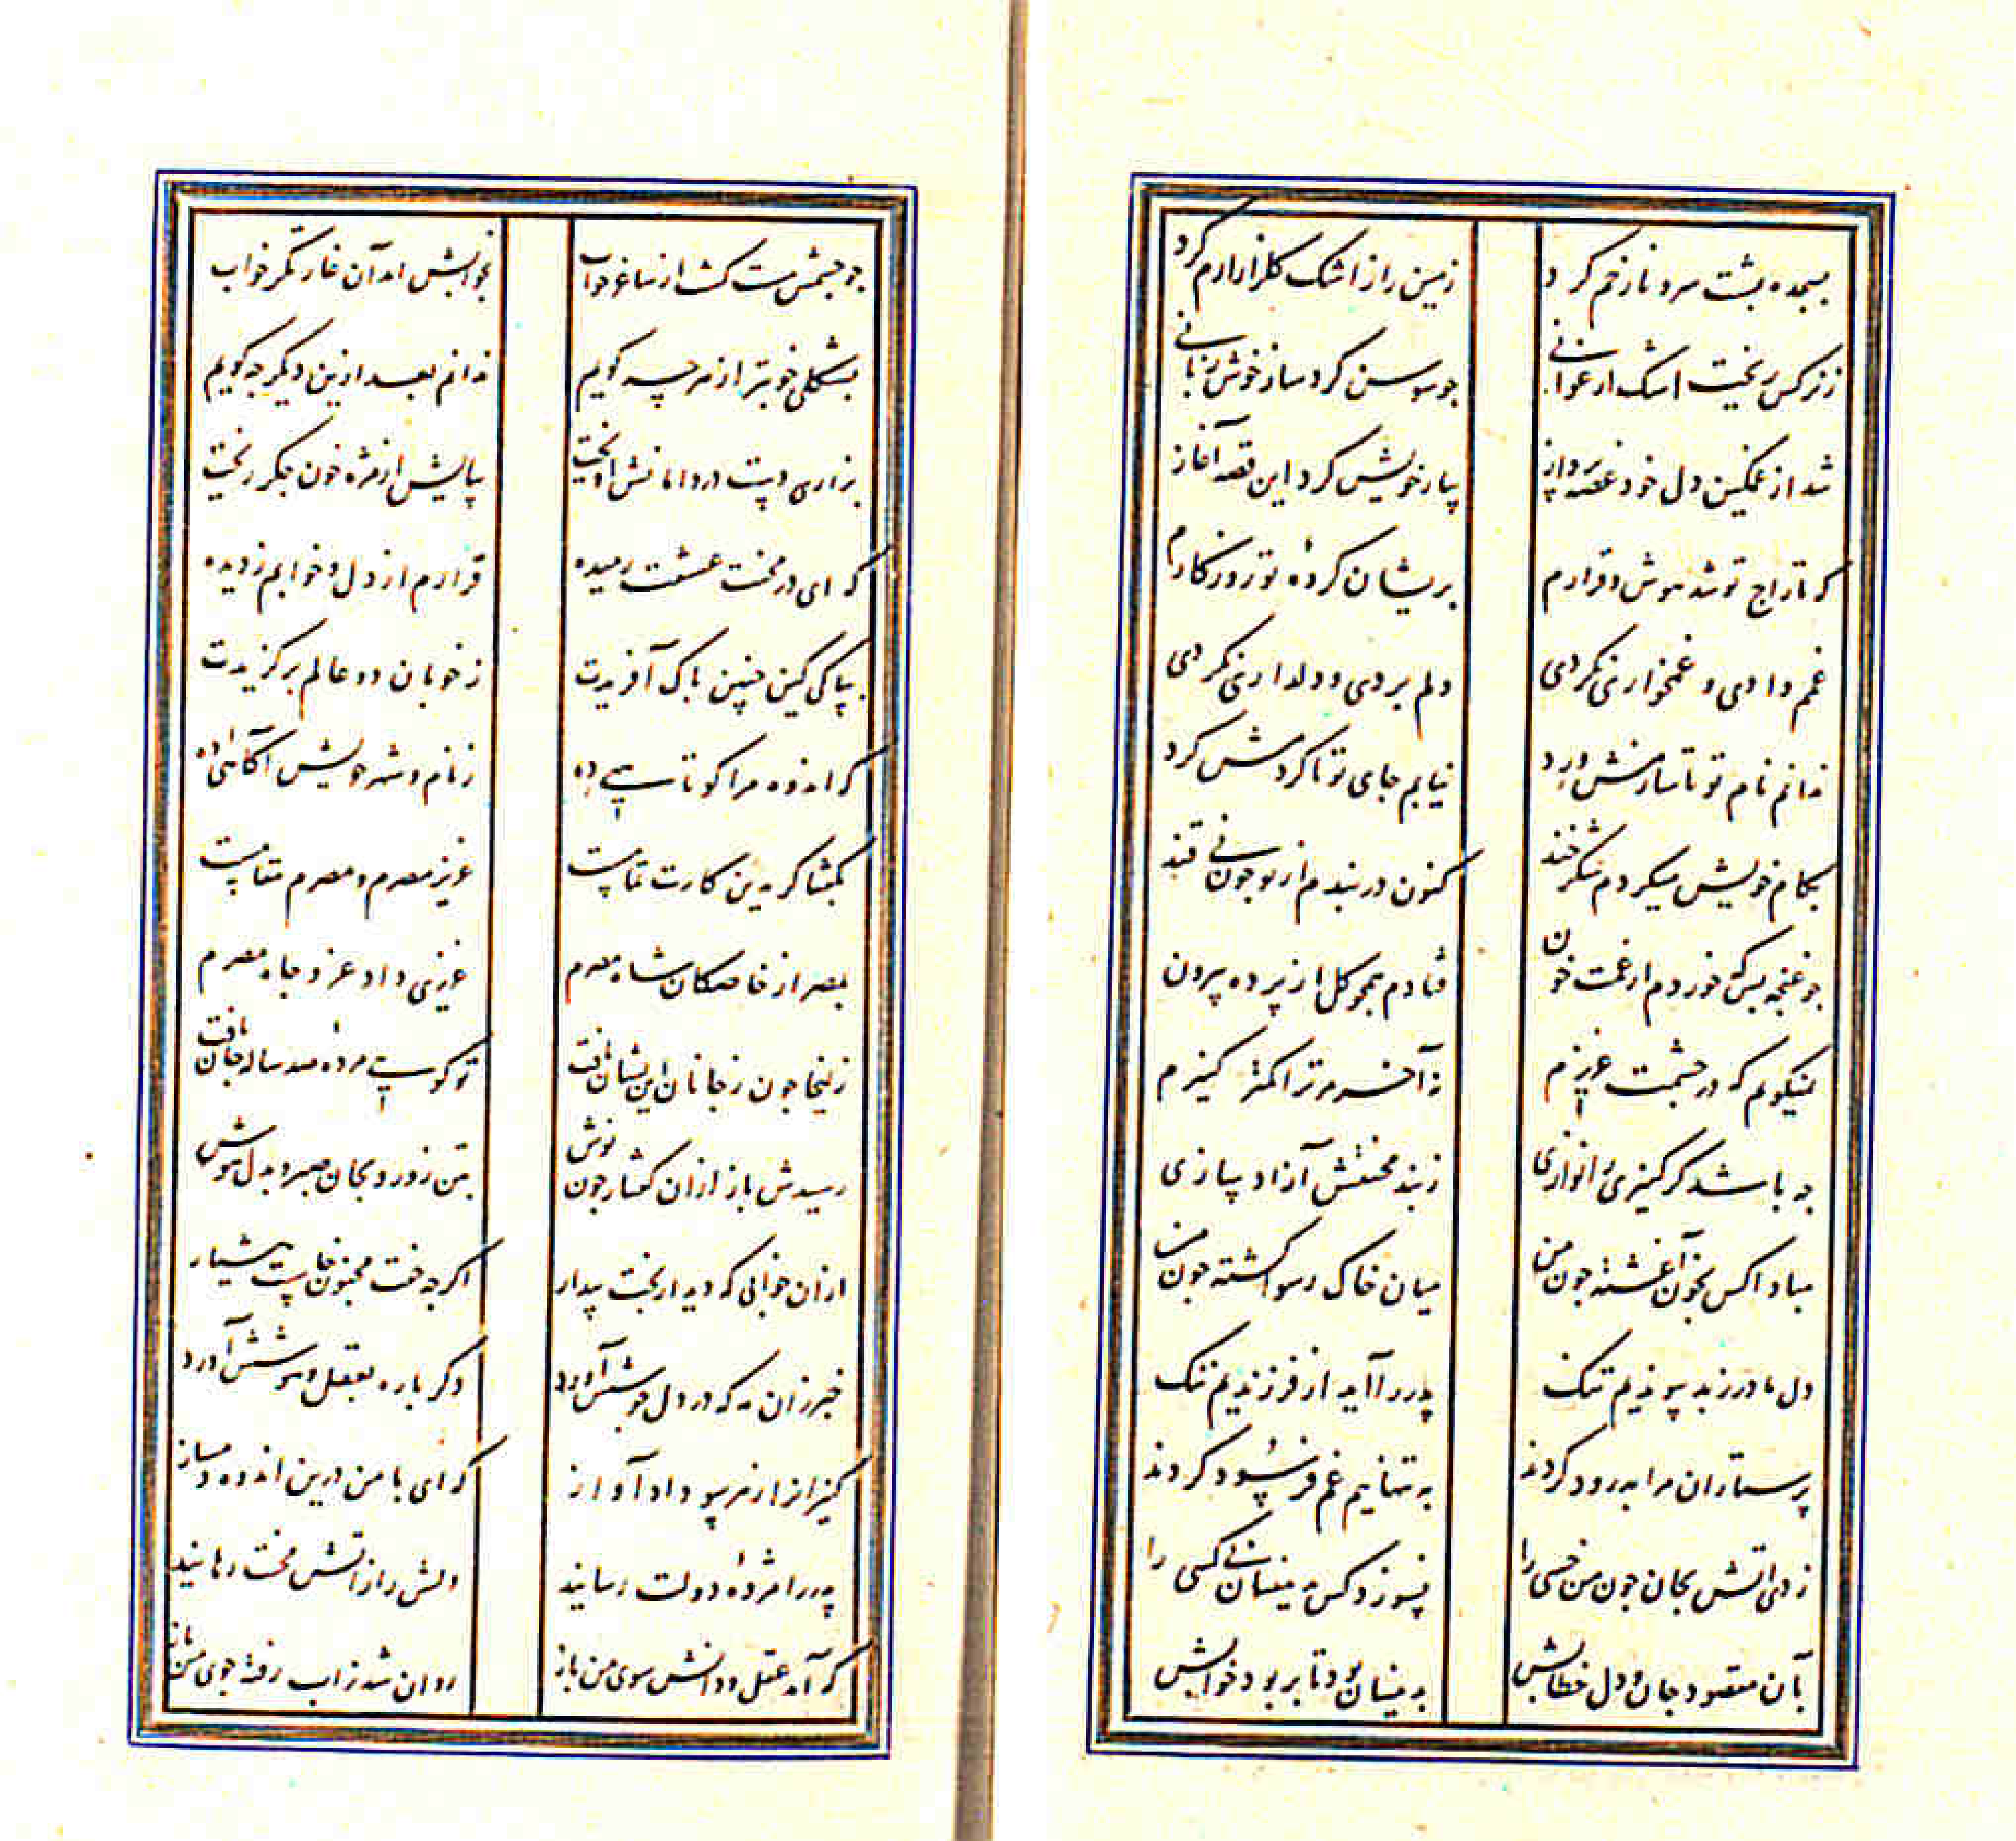 بسجده پشت سرو ناز خم کرد
زمین را از اشک گلزار ارم کرد
ز نرگس ریخت اشک ارغوانی
چو سوسن کرد ساز خوش زبانی
شد از غمگین دل خود غصه پرداز
بیار خویش کرد این قصه آغاز
که تاراج تو شد هوش و قرارم
پریشان کردهٔ تو روزگارم
غمم دادی و غمخواری نکردی
دلم بردی و دلداری نکردی
ندانم نام تو تا سازمش ورد
نیابم جای تو تا گردمش گرد
بکام خویش میکردم شکرخند
کنون در بندم از تو چون نی قند
چو غنچه بسکه خوردم از غمت خون
فتادم همچو گل از پرده بیرون
نمیگویم که در چشمت عزیزم
نه آخر مر ترا کمتر کنیزم
چه باشد گر کنیزی را نوازی
ز بند محنتش آزاد سازی
مباد اکس بخون آغشته چون من
میان خاک رسوا گشته چون من
دل مادر ز بد پیوندیم تنگ
پدر را آید از فرزندیم ننگ
پرستاران مرا بدرود کردند
به تنهاییم غم فرسود کردند
زدی آتش بجان چون من خسی را
نسوزد کس بدینسان بی کسی را
بآن مقصود جان و دل خطابش
بدینسان بود تا بربود خوابش
چو چشمش مست گشت از ساغر خواب
بخوابش آمد آن غارتگر خواب
بشکلی خوبتر از هر چه گویم
ندانم بعد ازین دیگر چه گویم
بزاری دست در دامانش آویخت
بپایش از مژه خون جگر ریخت
که ای در محنت عشقت رمیده
قرارم از دل و خوابم ز دیده
بپاکی کین چنین پاک آفریدت
ز خوبان دو عالم برگزیدت
که اندوه مرا کوتاهیی ده
ز نام و شهر خویش آگاهی ده
بگفتا گر بدین کارت تمامست
عزیز مصرم و مصرم مقامست
بمصر از خاصگان شاه مصرم
عزیزی داد عز و جاه مصرم
زلیخا چون ز جانان این نشان یافت
تو گویی مردهٔ صد ساله جان یافت
رسیدش باز ازان گفتار چون نوش
بتن زور و بجان صبر و بدل هوش
ازان خوابی که دید از بخت بیدار
اگرچه خفت مجنون خاست هشیار
خبر زان مه که در دل جوشش آورد
دگر باره بعقل و هوشش آورد
کنیزانرا ز هر سو داد آواز
که ای با من درین اندوه دمساز
پدر را مژدهٔ دولت رسانید
دلش را ز آتش محنت رهانید
که آمد عقل و دانش سوی من باز
روان شد ز آب رفته جوی من باز